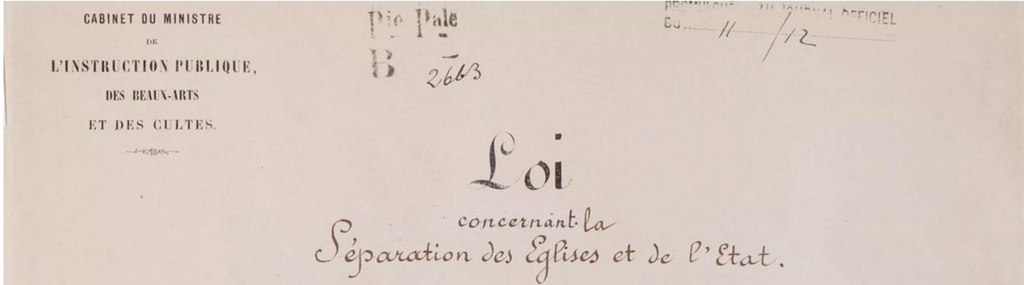 CABINET DU MINISTRE
DE
L'INSTRUCTION PUBLIQUE,
DES BEAUX-ARTS
ET DES CULTES.
Pie Pale
B 2663
JOURNAL OFFICIEL
DU 11/12
Loi
concernant la
Séparation des Eglises et de l'Etat.